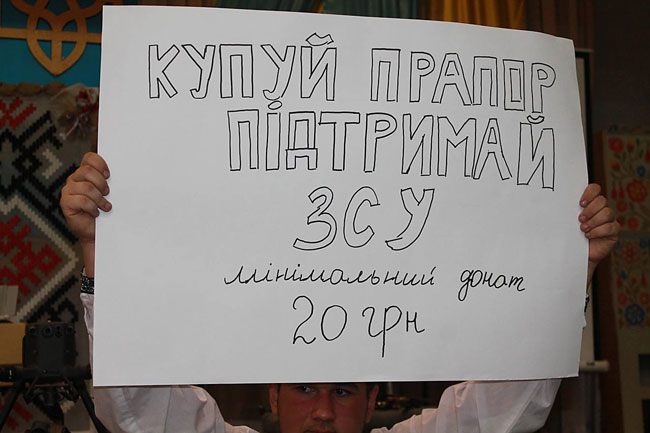 КУПУЙ ПРАПОР
ПІДТРИМАЙ
ЗСУ
мінімальний донат
20 грн